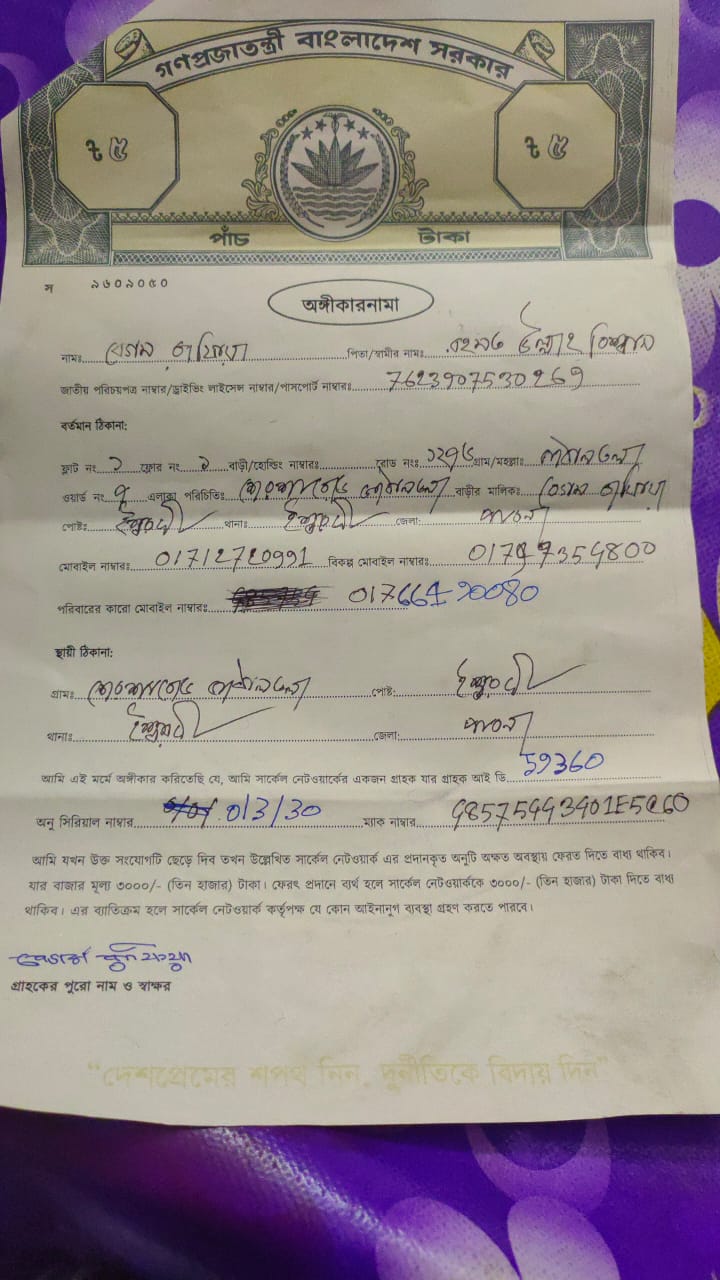 গণপ্রজাতন্ত্রী বাংলাদেশ সরকার
৳ ৫ ৳ ৫
পাঁচ টাকা
স ৯৬০৯০৫০
অঙ্গীকারনামা
নামঃ বেগম পিতা/স্বামীর নামঃ রহমত উল্লাহ বিশ্বাস
জাতীয় পরিচয়পত্র নাম্বার/ড্রাইভিং লাইসেন্স নাম্বার/পাসপোর্ট নাম্বারঃ 7623907530269
বর্তমান ঠিকানা:
ফ্লাট নং ১ ফ্লোর নং ১ বাড়ী/হোল্ডিং নাম্বারঃ রোড নংঃ গ্রাম/মহল্লাঃ
ওয়ার্ড নং এলাকা পরিচিতিঃ বাড়ীর মালিকঃ বেগম
পোষ্টঃ ঈশ্বরদী থানাঃ ঈশ্বরদী জেলা: পাবনা
মোবাইল নাম্বারঃ 01712720991 বিকল্প মোবাইল নাম্বারঃ
পরিবারের কারো মোবাইল নাম্বারঃ
স্থায়ী ঠিকানা:
গ্রামঃ পোষ্ট: ঈশ্বরদী
থানাঃ ঈশ্বরদী জেলা: পাবনা
আমি এই মর্মে অঙ্গীকার করিতেছি যে, আমি সার্কেল নেটওয়ার্কের একজন গ্রাহক যার গ্রাহক আই ডি 59360
অনু সিরিয়াল নাম্বার 0/3/30 ম্যাক নাম্বার
আমি যখন উক্ত সংযোগটি ছেড়ে দিব তখন উল্লেখিত সার্কেল নেটওয়ার্ক এর প্রদানকৃত অনুটি অক্ষত অবস্থায় ফেরত দিতে বাধ্য থাকিব।
যার বাজার মূল্য ৩০০০/- (তিন হাজার) টাকা। ফেরৎ প্রদানে ব্যর্থ হলে সার্কেল নেটওয়ার্ককে ৩০০০/- (তিন হাজার) টাকা দিতে বাধ্য
থাকিব। এর ব্যাতিক্রম হলে সার্কেল নেটওয়ার্ক কর্তৃপক্ষ যে কোন আইনানুগ ব্যবস্থা গ্রহণ করতে পারবে।
গ্রাহকের পুরো নাম ও স্বাক্ষর
“দেশপ্রেমের শপথ নিন, দুর্নীতিকে বিদায় দিন”